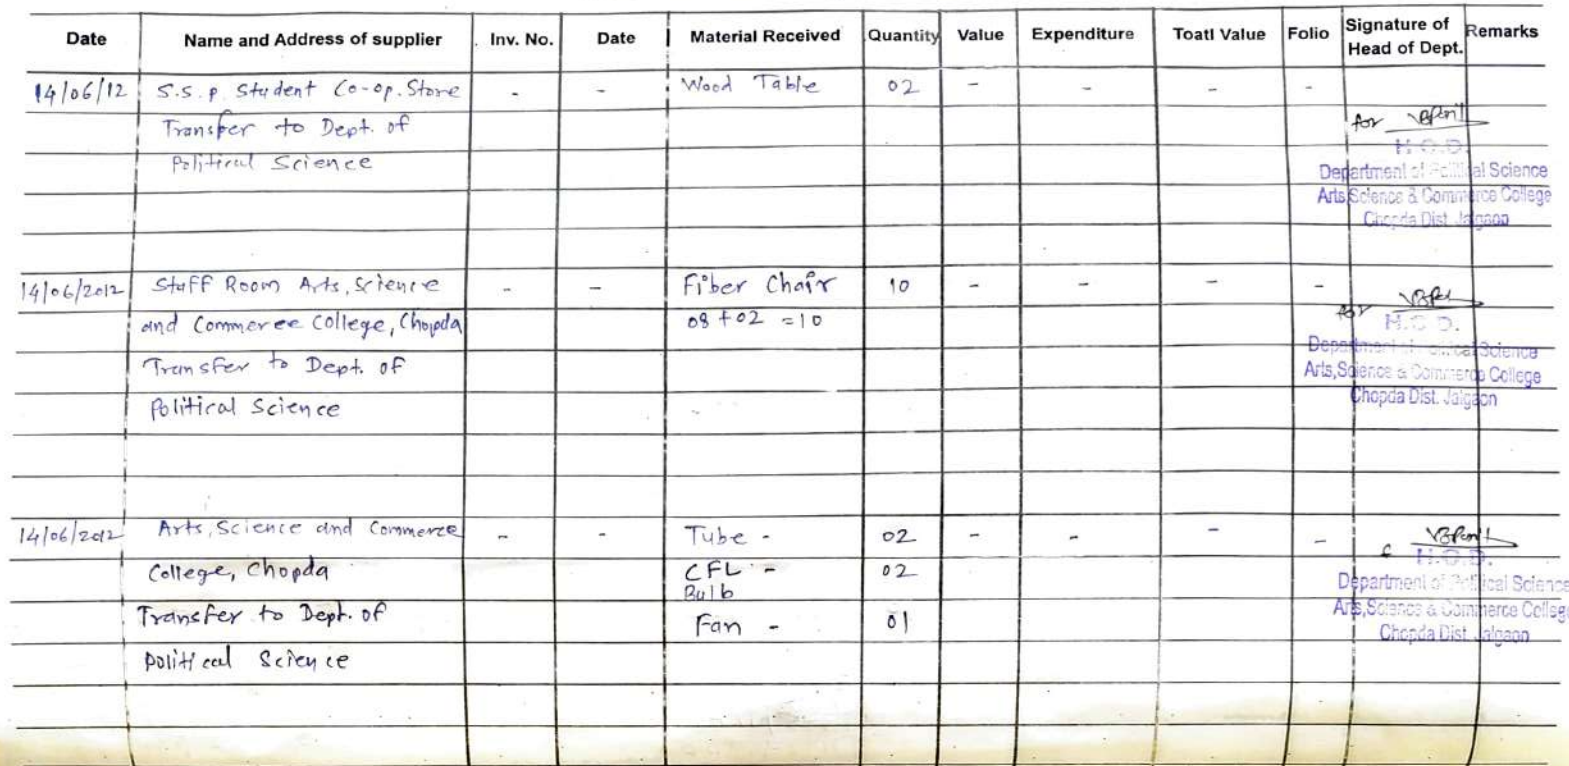 Date Name and Address of supplier Inv. No. Date Material Received Quantity Value Expenditure Toatl Value Folio Signature of Head of Dept. Remarks
14/06/12 S.S.P. Student Co-op. Store - - Wood Table 02 - - - -
Transfer to Dept. of for
Political Science H.O.D.
Department of Political Science
Arts,Science & Commerce College
Chopda Dist. Jalgaon
14/06/2012 Staff Room Arts, Science - - Fiber Chair 10 - - - -
and Commerce College, Chopda 08 + 02 = 10 for
H.O.D.
Transfer to Dept. of Department of Political Science
Arts,Science & Commerce College
Political Science Chopda Dist. Jalgaon
14/06/2012 Arts, Science and Commerce - - Tube - 02 - - - -
College, Chopda CFL - 02 H.O.D.
Bulb Department of Political Science
Transfer to Dept. of Fan - 01 Arts,Science & Commerce College
Chopda Dist. Jalgaon
Political Science